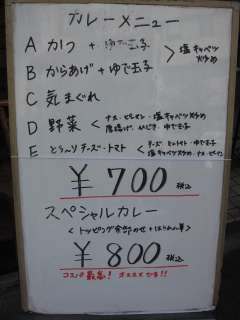 カレーメニュー
A かつ + ゆで玉子 > 塩キャベツ炒め
B からあげ + ゆで玉子
C 気まぐれ
D 野菜 < ナス・ピーマン・塩キャベツ炒め
・ゆで玉子
E とろ〜りチーズ・トマト < チーズ・ミニトマト・ゆで玉子
塩キャベツ炒め・ナス・ピーマン
¥700税込
スペシャルカレー
<トッピング全部のせ +
¥800税込
コスパ最高!オススメです!!